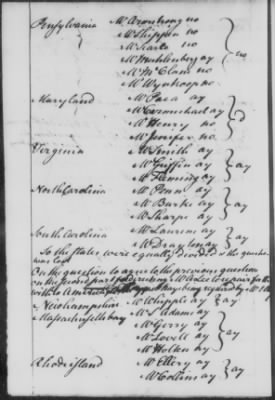 Pensylvania Mr Armstrong no
Mr Shippen no
Mr Searle no
Mr Muhlenberg ay
Mr McClene no
Mr Wynkoop no
no
Maryland Mr Paca ay
Mr Carmichael ay
Mr Henry no
Mr Jenifer no
d
Virginia Mr Smith ay
Mr Griffin ay
Mr Fleming ay
ay
North Carolina Mr Penn ay
Mr Burke ay
Mr Sharpe ay
ay
South Carolina Mr Laurens ay
Mr Drayton ay
ay
So the states were equally divided & the question
was lost
On the question to agree to the previous question
on the second part
New hampshire Mr Whipple ay ay
Massachusetts bay Mr S Adams ay
Mr Gerry ay
Mr Lovell ay
Mr Holten ay
ay
Rhode island Mr Ellery ay
Mr Collins ay
ay